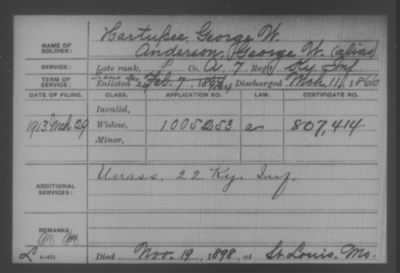 NAME OF SOLDIER: Hartupee, George W.
Anderson, George W. (alias)
SERVICE: Late rank, P Co. A, 7 Reg't Ky. Inf
TERM OF SERVICE: Enlisted Feb. 7, 1864 Discharged Mch. 11, 1866
DATE OF FILING. CLASS. APPLICATION NO. LAW. CERTIFICATE NO.
Invalid,
1913 Mch 29 Widow, 1005253 a 807,414
Minor,
ADDITIONAL SERVICES: Unass. 22 Ky. Inf.
REMARKS:
Died Nov. 19, 1898, at St. Louis, Mo.